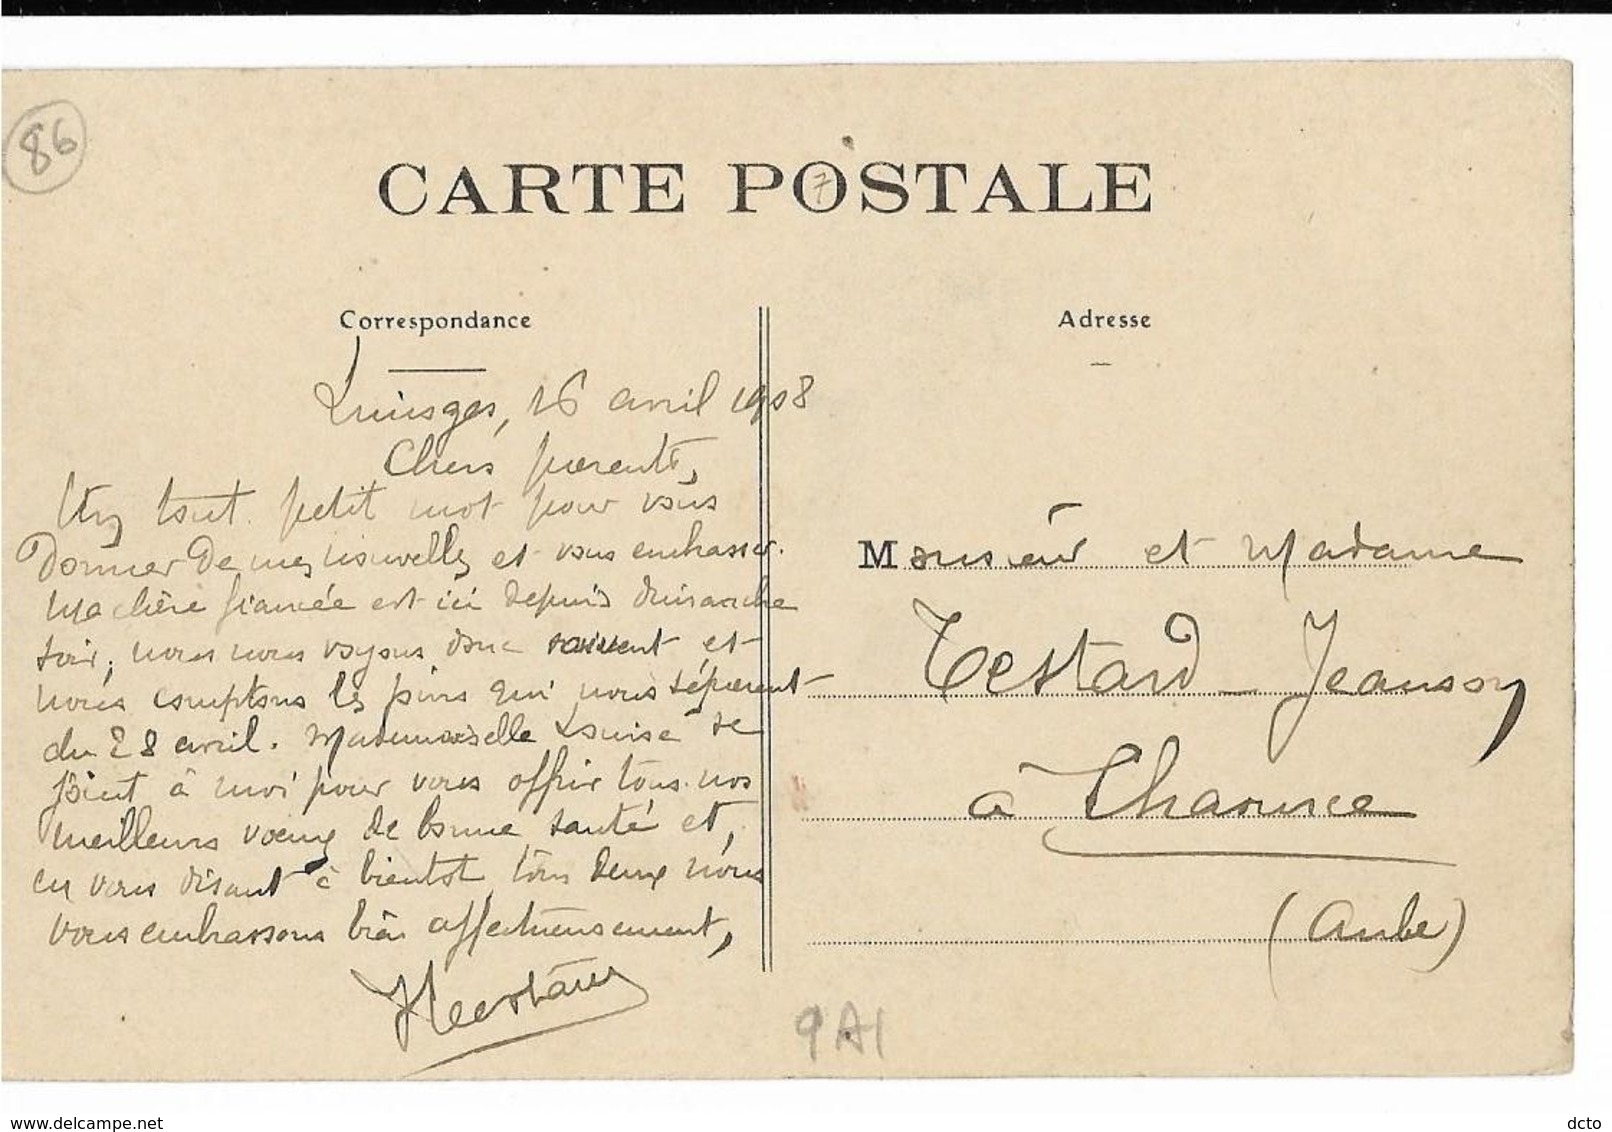 86
CARTE POSTALE
7
Correspondance
Limoges, 16 avril 1908
Chers parents,
Un tout petit mot pour vous
donner de mes nouvelles et vous embrasser.
Ma chère fiancée est ici depuis dimanche
soir, nous nous voyons donc souvent et
nous comptons les jours qui nous séparent
du 28 avril. Mademoiselle Louise se
joint à moi pour vous offrir tous nos
meilleurs vœux de bonne santé et,
en vous disant à bientôt tous deux nous
vous embrassons bien affectueusement,
Adresse
Monsieur et Madame
Testard-Jeanson
à Chaource
(Aube)
9A1
www.delcampe.net
dcto